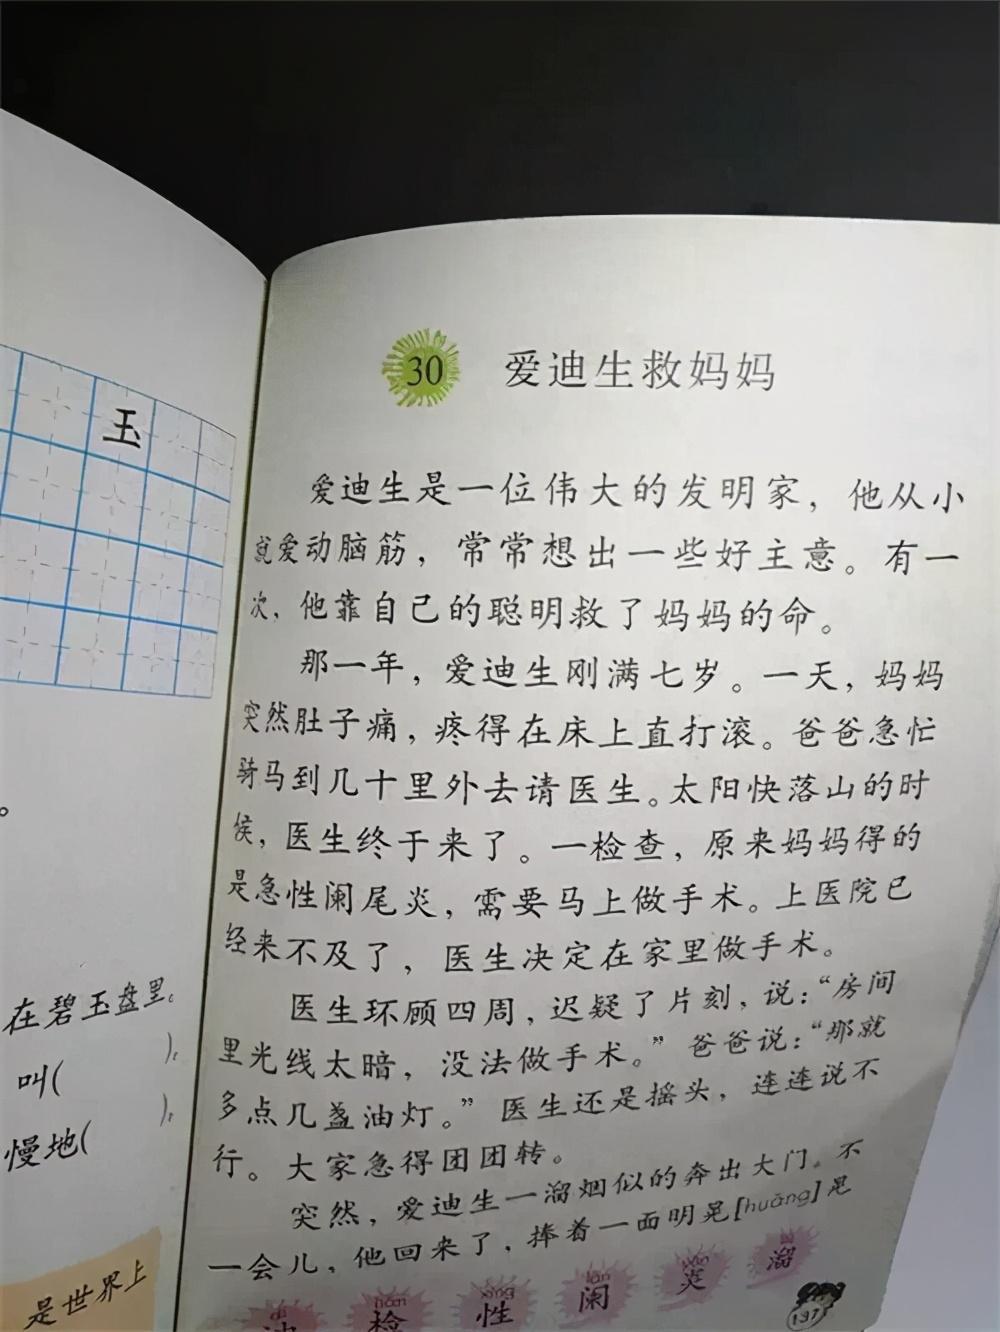 玉
。
在碧玉盘里。
叫(      )。
慢地(      )。
是世界上
30 爱迪生救妈妈
爱迪生是一位伟大的发明家，他从小
就爱动脑筋，常常想出一些好主意。有一
次，他靠自己的聪明救了妈妈的命。
那一年，爱迪生刚满七岁。一天，妈妈
突然肚子痛，疼得在床上直打滚。爸爸急忙
骑马到几十里外去请医生。太阳快落山的时
候，医生终于来了。一检查，原来妈妈得的
是急性阑尾炎，需要马上做手术。上医院已
经来不及了，医生决定在家里做手术。
医生环顾四周，迟疑了片刻，说：“房间
里光线太暗，没法做手术。”爸爸说：“那就
多点几盏油灯。”医生还是摇头，连连说不
行。大家急得团团转。
突然，爱迪生一溜烟似的奔出大门。不
一会儿，他回来了，捧着一面明晃[huǎng]晃
dí jiǎn xìng lán yán liū
迪 检 性 阑 炎 溜
137